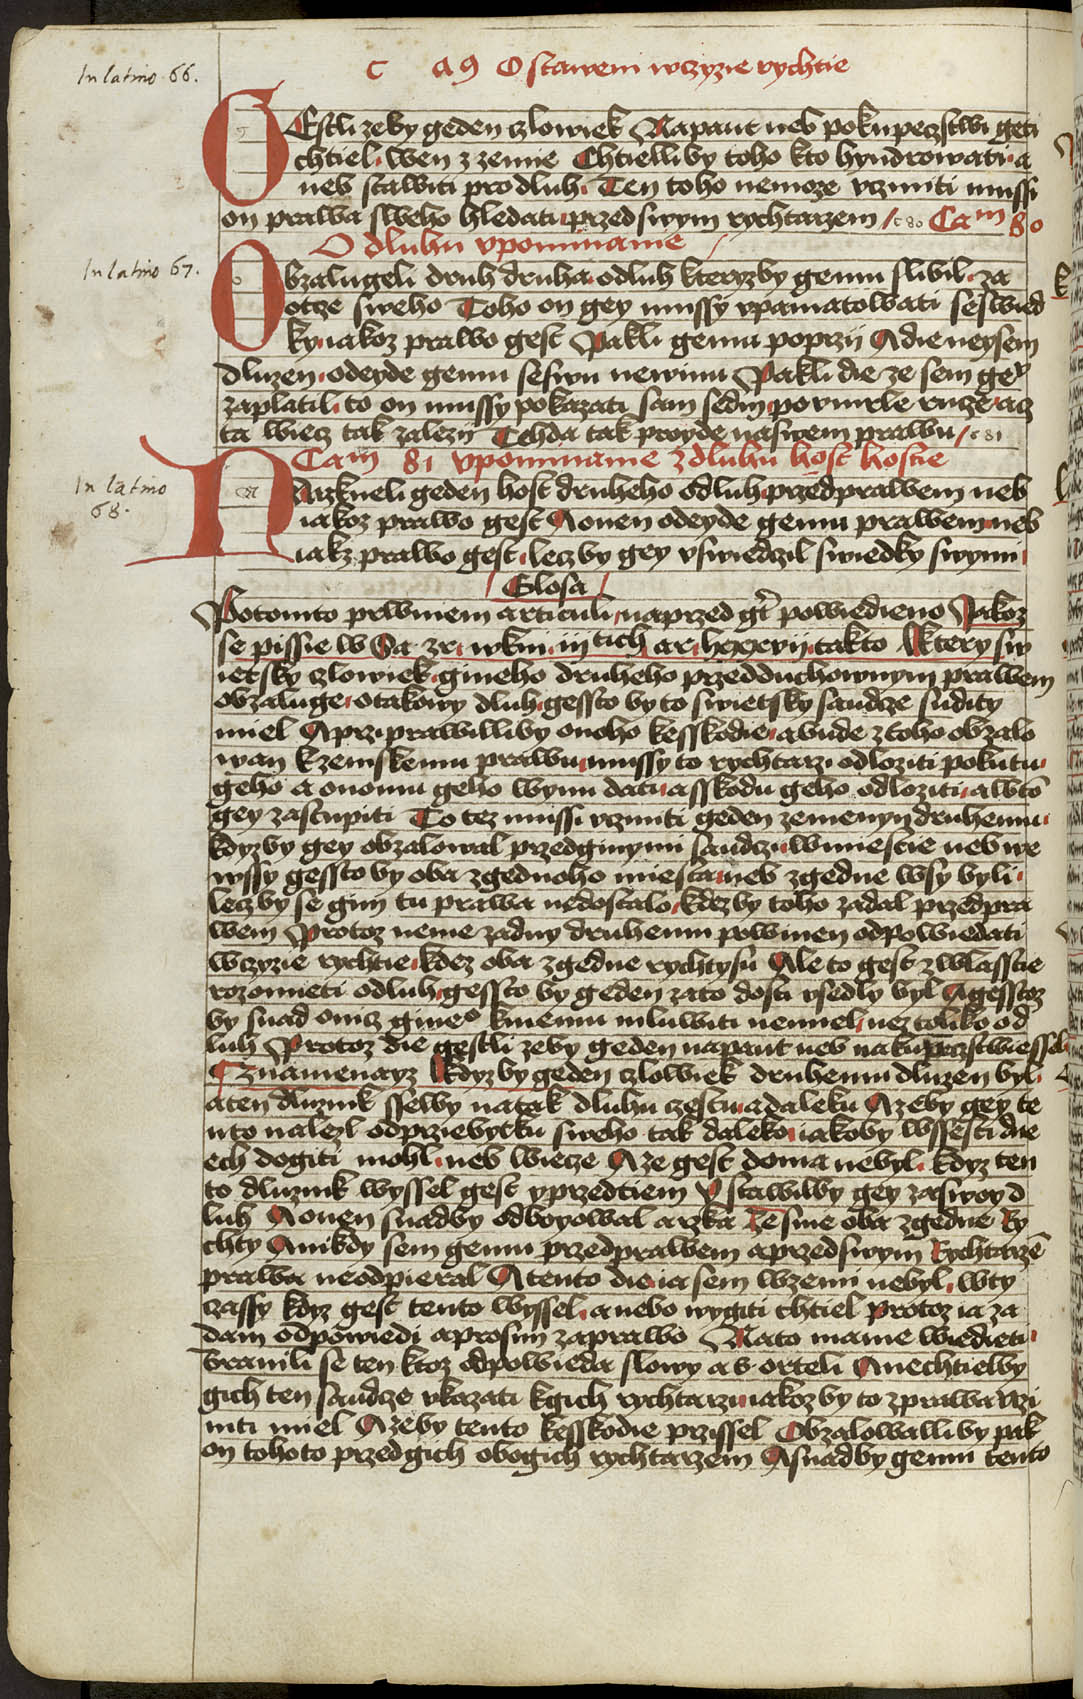 In latino 66.
C a 9 O stawem w czyzie rychtie
GEstli zeby geden czlowiek Na paut neb po kupeczstwi geti
chtiel. wen z zemie Chtielliby toho kto hyndrowati. a
neb stawiti pro dluh. Ten toho nemoze vcziniti mussi
on prawa sweho hledati przed swym rychtarzem / c 80 Cam 80
O dluhu vpominanie /
In latino 67.
Obzalugeli druh druha. o dluh kteryzby gemu slibil. za
otcze sweho Toho on gey mussy vpamatowati se swied
ky. iakoz prawo gest Pakli gemu poprzij A die neysem
dluzen. odeyde gemu se swu newinu Pakli die ze sem gey
zaplatil. to on mussy pokazati sam sedm. po vmrle rucze. acz
ta wiecz tak zalezy Tehda tak proyde na swem prawu / c 81
Cam 81 vpominanie z dluhu host hostie
In latino
68.
NArzkneli geden host druheho o dluh. przed prawem neb
iakoz prawo gest A onen odeyde gemu prawem. neb
iakz prawo gest. lecz by gey vswiedczil swiedky swymi
/ Glosa /
Potomto prwniem articuli. naprzed gt powiedieno Jakoz
se pissie w Sa. zr. w kni. iij tich ar. lxxxvij. takto Ktery sw
ietsky czlowiek. gineho druheho przed duchownym prawem
obzaluge. o takowy dluh. gessto by to swietsky saudcze suditi
miel A przi prawilliby onoho kesskodie. a bude z toho obzalo
wan k zemskemu prawu. mussy to rychtarz. odloziti pokutu.
geho a onomu geho wynu dati. a sskodu geho odloziti. a w to
gey zastupiti To tez mussi vcziniti geden zemenyn druhemu.
kdyzby gey obzalowal przed ginymi saudczi. w miestie neb we
wssy gessto by oba z gednoho miesta. neb z gedne wsy byli.
lecz by se gim tu prawa nedostalo. kdez by toho zadal przed pra
wem Protoz neme zadny druhemu powinen odpowiedati
w czyzie rychtie. kdez oba z gedne rychty su Ale to gest zwlasstie
rozomieti o dluh. gessto by geden za to dosti vsedly byl A gesstoz
by snad o nicz gineo k niemu mluwiti nemiel. nez toliko o d
luh Protoz die gestli zeby geden na paut neb na kupeczstwie ssel
Znamenayz Kdyz by geden czlowiek druhemu dluzen byl.
a ten dluznik sselby na tak dluhu czestu. a daleku A zeby gey te
nto nalezl od prziebytku sweho tak daleko. iakoby w ssesti dne
ech dogiti mohl. neb wiecze A ze gest doma nebyl. kdyz ten
to dluznik wyssel gest y przed tiem Y stawilby gey za swoy d
luh A onen snadby odbogowal a rzka Ze sme oba z gedne Ry
chty A nikdy sem gemu przed prawem a przed swym Rychtarze
prawa neodpieral A tento die. ia sem w zemi nebyl. w ty
czassy kdyz gest tento wyssel. a nebo wygiti chtiel protoz ia za
dam odpowiedi a prosim za prawo Na to mame wiedieti.
branili se ten ktoz odpowieda slowy a s orteli A nechtielby
gich ten saudcze vkazati k gich rychtarzi. iakoz by to z prawa vczi
niti miel A zeby tento ke sskodie przissel Obzalowalliby pak
on tohoto przed gich obogich rychtarzem A snadby gemu tento